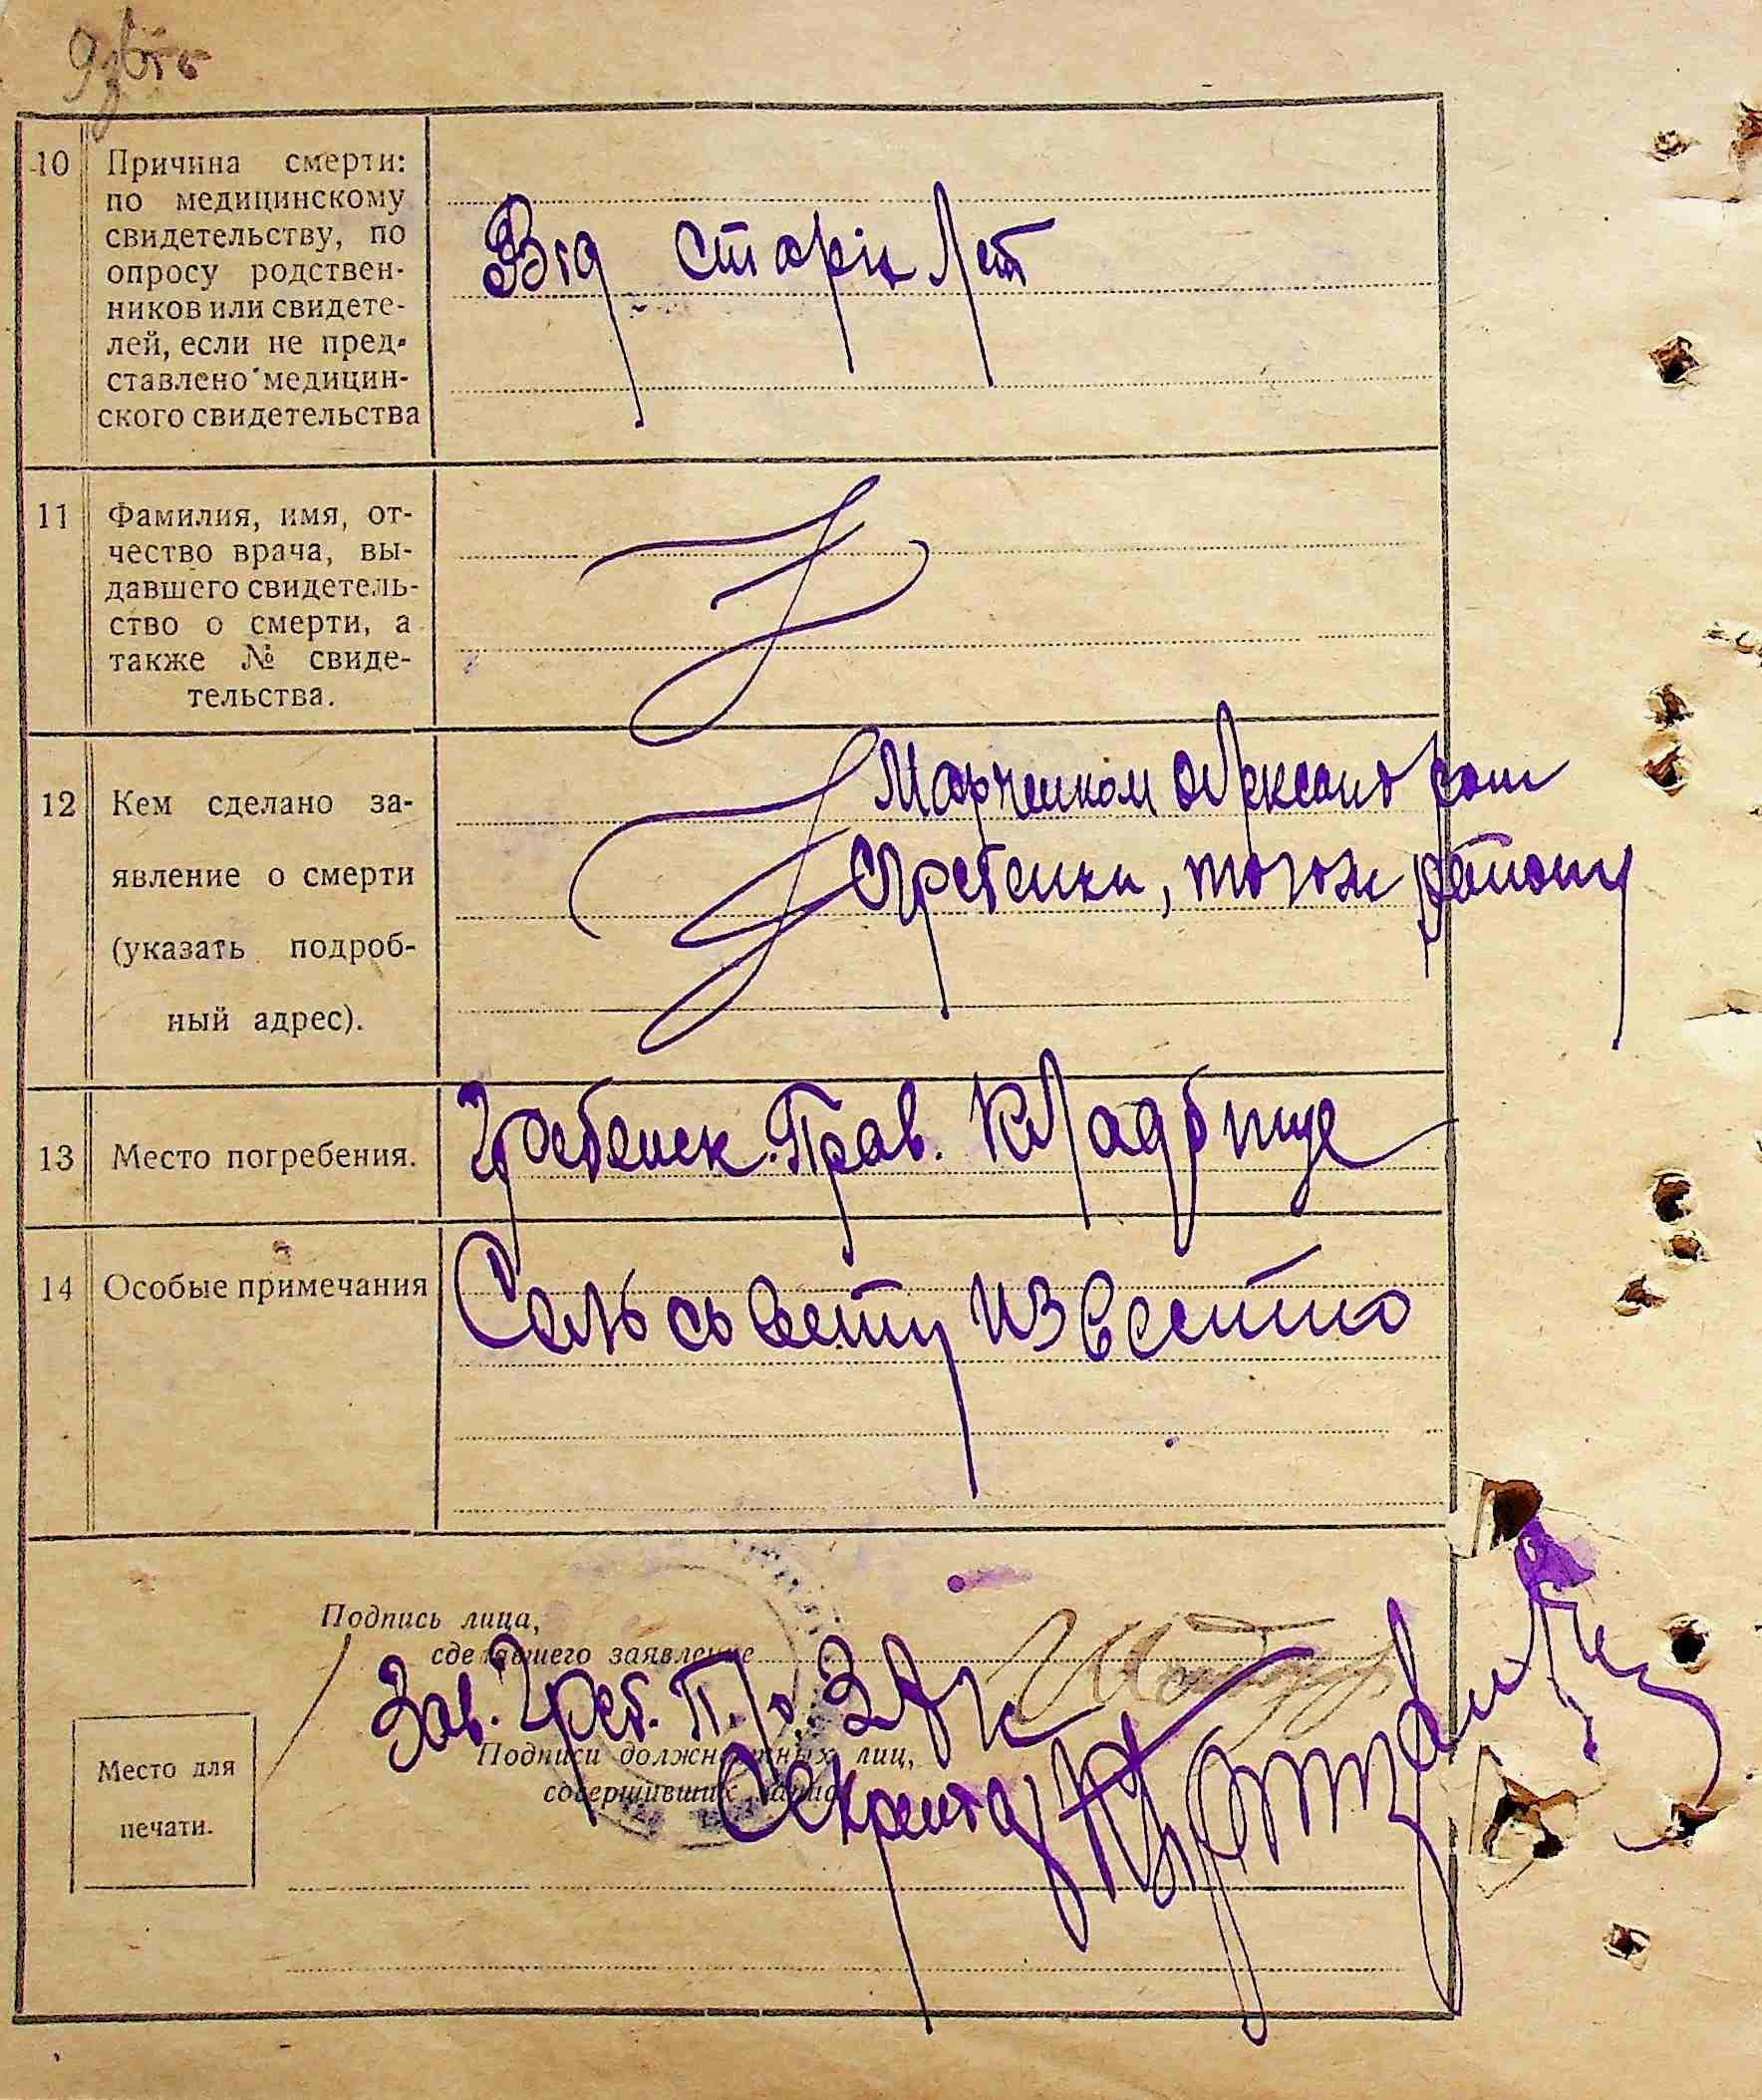 10 Причина смерти:
по медицинскому
свидетельству, по
опросу родствен-
ников или свидете-
лей, если не пред-
ставлено медицин-
ского свидетельства
Від старих лет
11 Фамилия, имя, от-
чество врача, вы-
давшего свидетель-
ство о смерти, а
также № свиде-
тельства.
12 Кем сделано за-
явление о смерти
(указать подроб-
ный адрес).
Марченком
Гребенки, тогож району
13 Место погребения.
Гребенск. Прав. Кладбище
14 Особые примечания
Сельсовету известно
Подпись лица,
сделавшего заявление
Зав. Греб.
Подписи должностных лиц,
совершивших запись
Секретарь
Место для
печати.